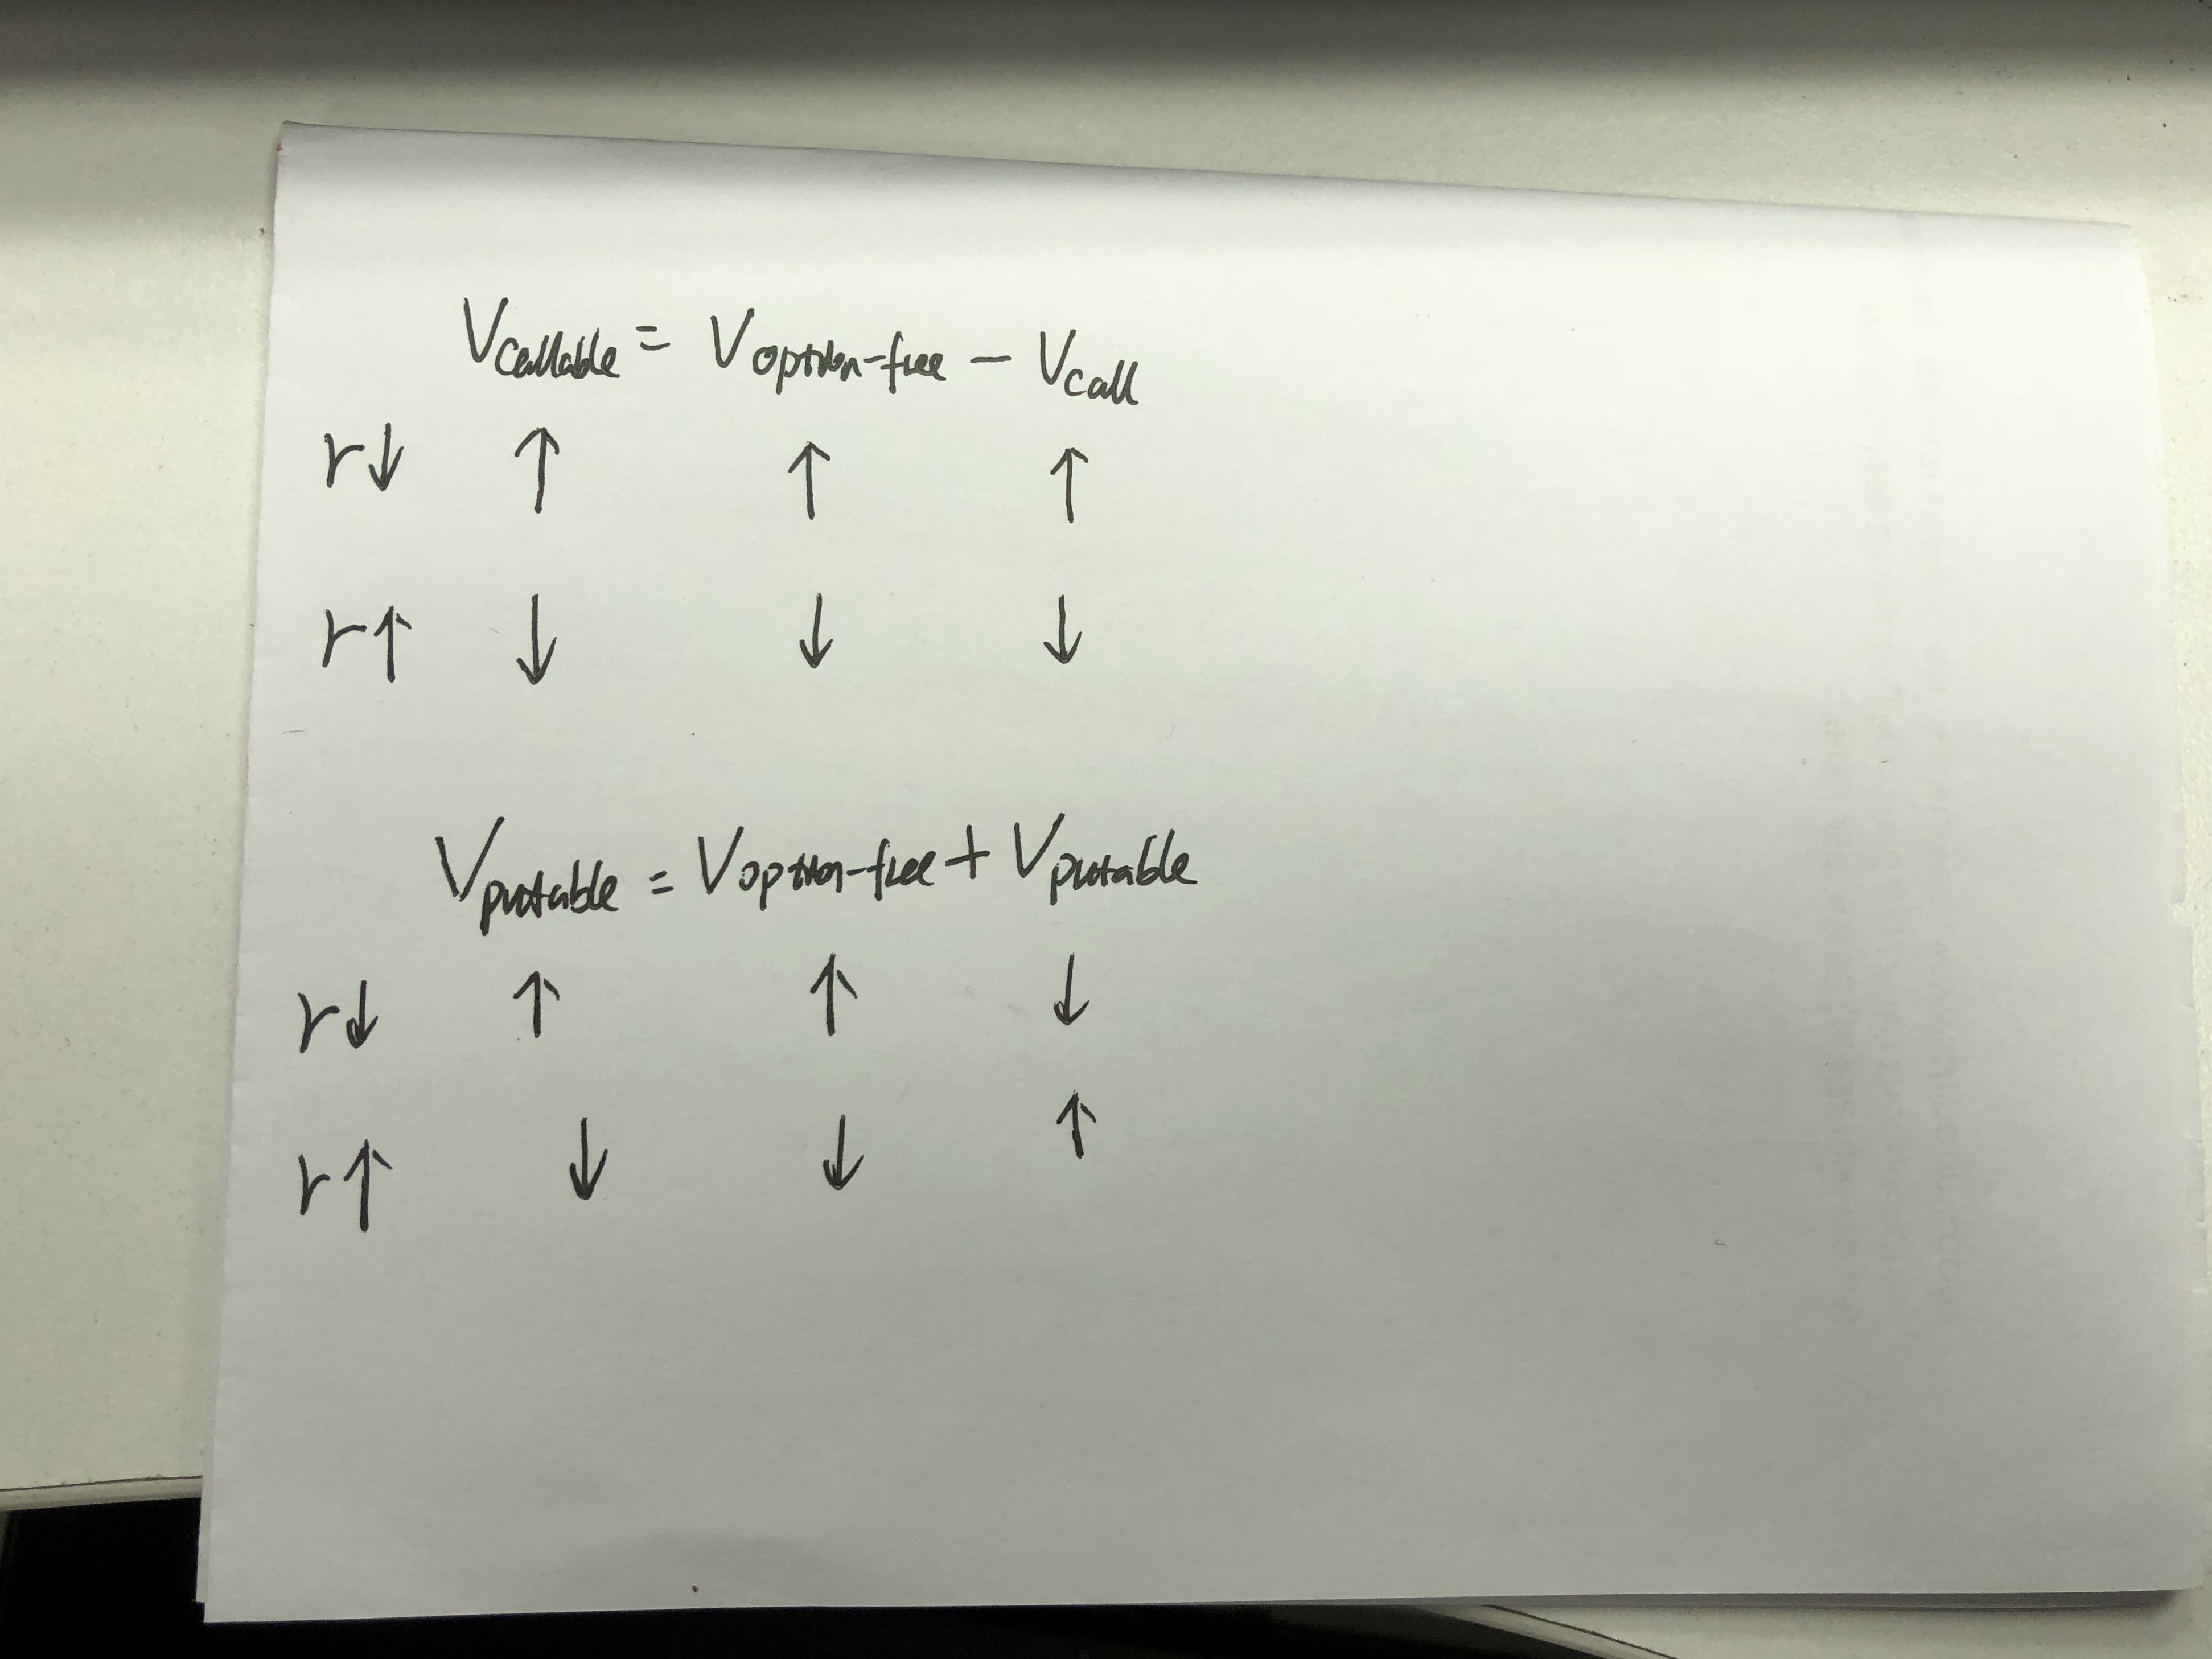 Vcallable = Voption-free − Vcall
r↓ ↑ ↑ ↑
r↑ ↓ ↓ ↓
Vputable = Voption-free + Vputable
r↓ ↑ ↑ ↓
r↑ ↓ ↓ ↑